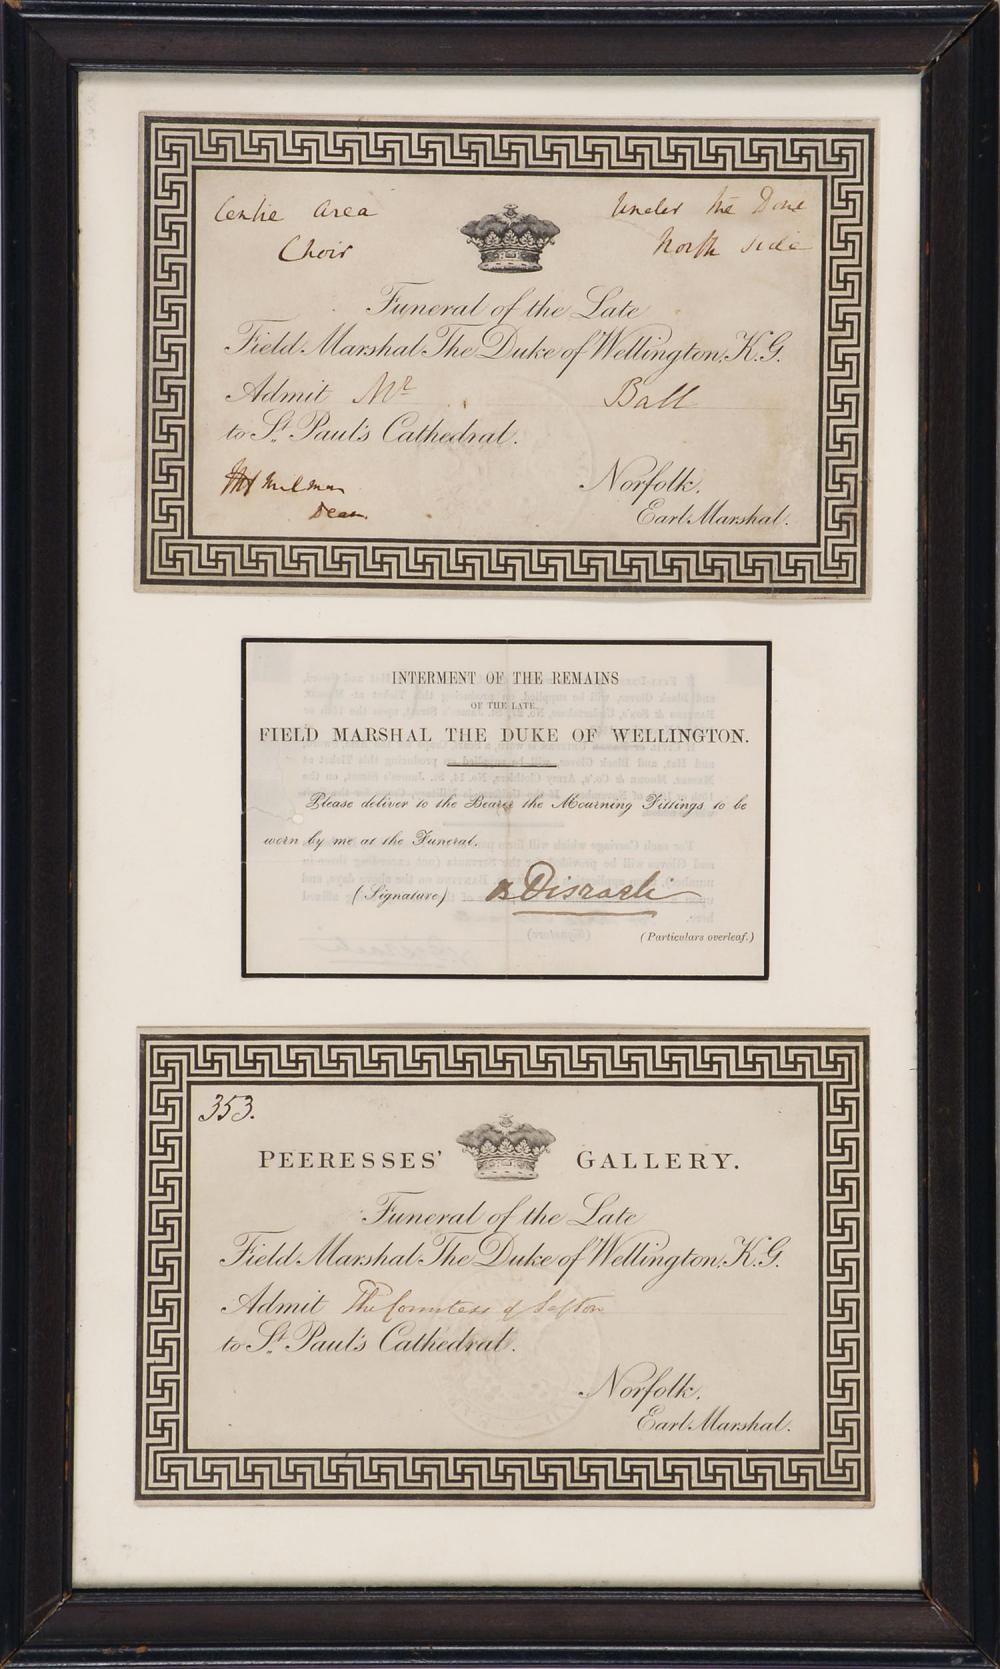 Centre area
Choir
Under the Dome
North side
Funeral of the Late
Field Marshal The Duke of Wellington, K.G.
Admit Mr Ball
to St. Paul's Cathedral.
HH Milman
Dean
Norfolk.
Earl Marshal.
INTERMENT OF THE REMAINS
OF THE LATE
FIELD MARSHAL THE DUKE OF WELLINGTON.
Please deliver to the Bearer the Mourning Fittings to be
worn by me at the Funeral.
(Signature) B Disraeli
(Particulars overleaf.)
353.
PEERESSES' GALLERY.
Funeral of the Late
Field Marshal The Duke of Wellington, K.G.
Admit The Countess of Sefton
to St. Paul's Cathedral.
Norfolk.
Earl Marshal.